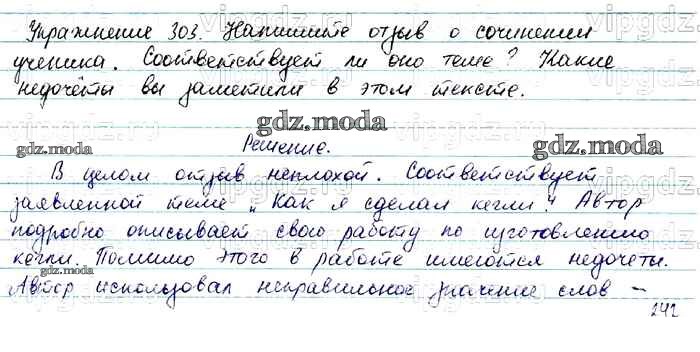 Упражнение 303. Напишите отзыв о сочинении
ученика. Соответствует ли оно теме? Какие
недочёты вы заметили в этом тексте.
gdz.moda
Решение.
gdz.moda
gdz.moda
В целом отзыв неплохой. Соответствует
заявленной теме „Как я сделал кегли". Автор
подробно описывает свою работу по изготовлению
кегли. Помимо этого в работе имеются недочеты.
Автор использовал неправильное значение слов –
242